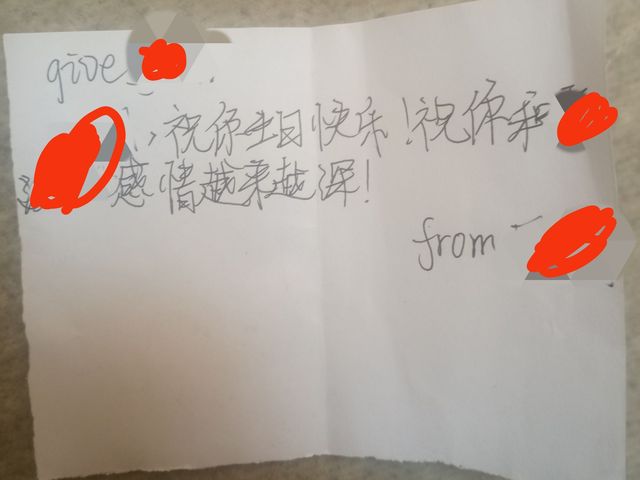 give
，祝你生日快乐！祝你和
感情越来越深！
from